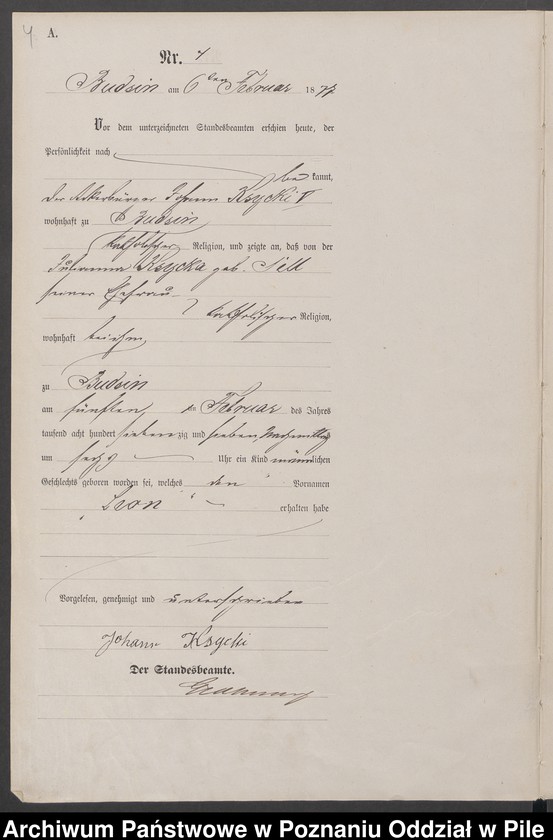 4
A.
Nr. 4
Budsin am 6 ten Februar 1877
Vor dem unterzeichneten Standesbeamten erschien heute, der
Persönlichkeit nach
be kannt,
der Ackerbürger Johann Ksycki V
wohnhaft zu Budsin
katholischer Religion, und zeigte an, daß von der
Julianna Ksycka geb. Sell
seiner Ehefrau
katholischer Religion,
wohnhaft bei ihm
zu Budsin
am fünften ten Februar des Jahres
tausend acht hundert sieben zig und sieben, Nachmittags
um sechs Uhr ein Kind männlichen
Geschlechts geboren worden sei, welches den Vornamen
"Leon" erhalten habe
Vorgelesen, genehmigt und unterschrieben
Johann Ksycki
Der Standesbeamte.
Archiwum Państwowe w Poznaniu Oddział w Pile